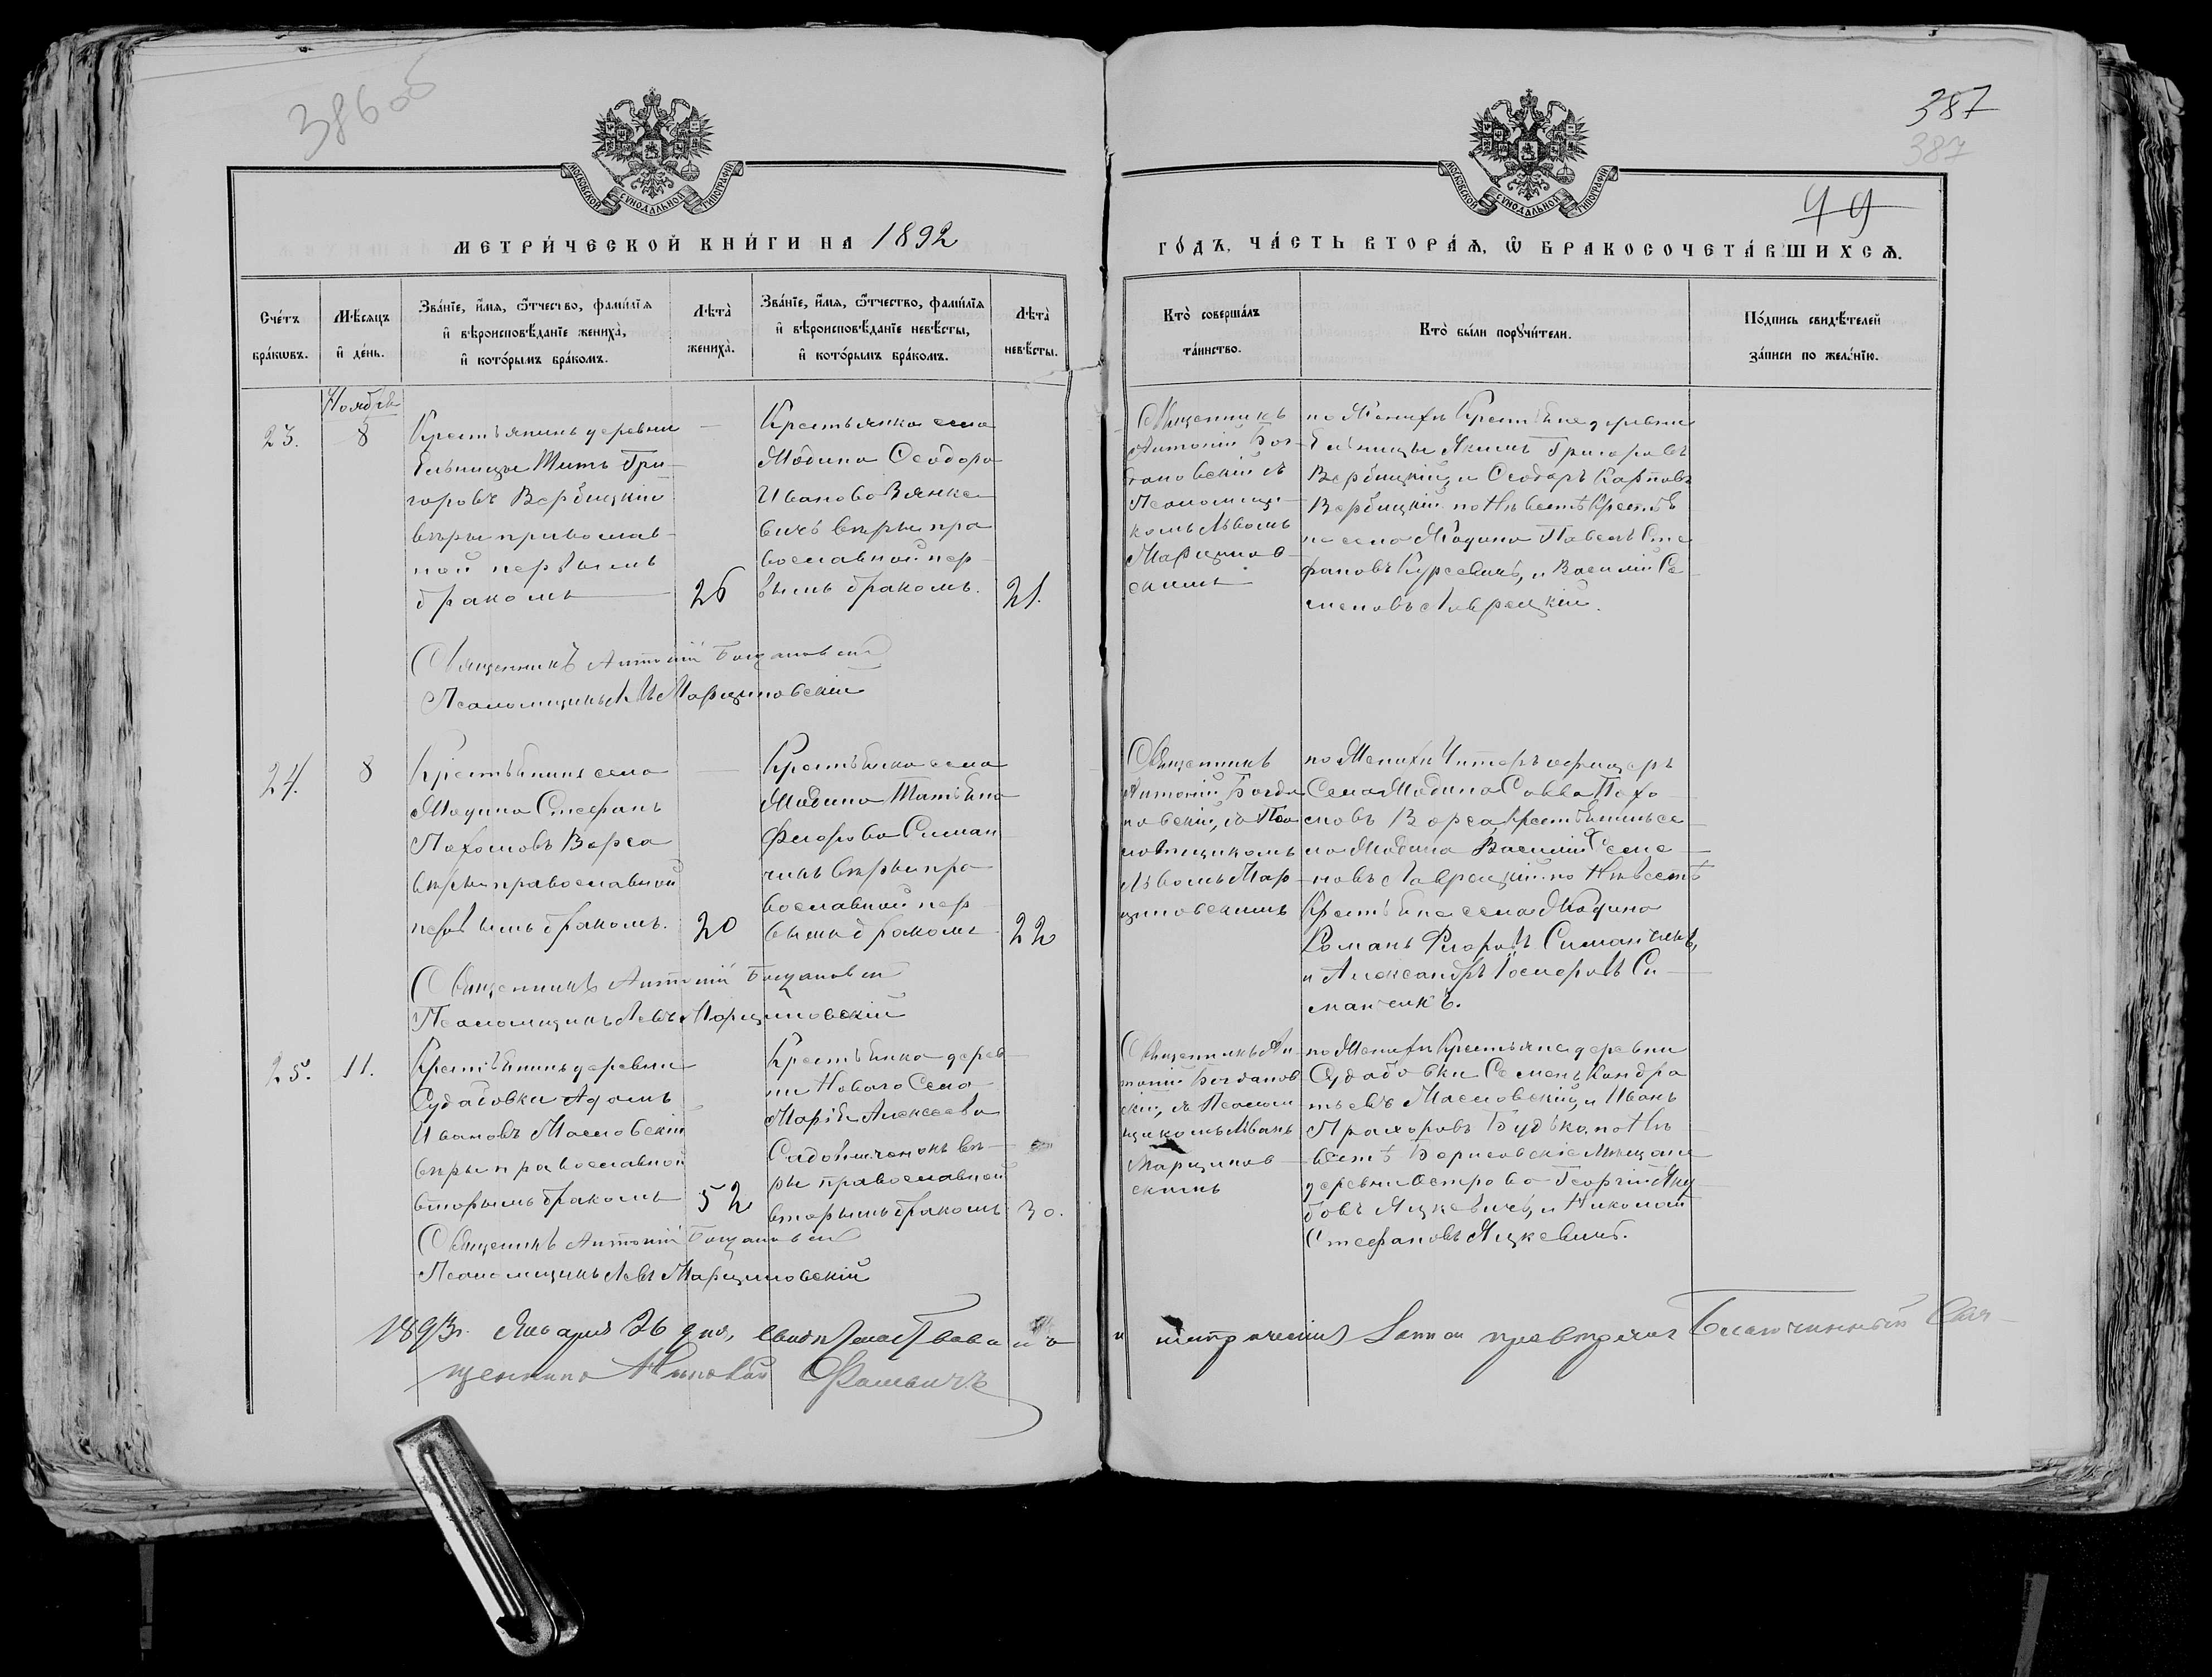 386об
387
387
49
МОСКОВСКОЙ СѴНОДАЛЬНОЙ ТИПОГРАФІИ
МОСКОВСКОЙ СѴНОДАЛЬНОЙ ТИПОГРАФІИ
МЕТРИ́ЧЕСКОЙ КНИ́ГИ НА 1892
ГО́ДЪ, ЧА́СТЬ ВТОРА́Ѧ, Ѡ҆ БРАКОСОЧЕТА́ВШИХСѦ.
Сче́тъ
бра́кѡвъ.
Мѣ́сѧцъ
и҆ де́нь.
Зва́нїе, и҆́мѧ, ѻ҆́тчество, фами́лїѧ
и҆ вѣроисповѣ́данїе жениха̀,
и҆ кото́рымъ бра́комъ.
Лѣта̀
жениха̀.
Зва́нїе, и҆́мѧ, ѻ҆́тчество, фами́лїѧ
и҆ вѣроисповѣ́данїе невѣ́сты,
и҆ кото́рымъ бра́комъ.
Лѣта̀
невѣ́сты.
Кто̀ соверша́лъ
та́инство.
Кто̀ бы́ли порꙋчи́тели.
По́дпись свидѣ́телей
за́писи по жела́нїю.
Ноября
23.
8
Крестьянинъ деревни
Ельницы Титъ Гри-
горовъ Вербицкій
вѣры православ-
ной первымъ
бракомъ
26
Крестьянка села
Мөдина Ѳеодора
Иванова
вичъ вѣры пра
вославной пер-
вымъ бракомъ.
21.
Священникъ
Антоній Бог-
дановскій съ
Псаломщи-
комъ Львомъ
Марцинов-
скимъ
по Женихѣ Крестьяне деревни
Ельницы Якимъ Григоровъ
Вербицкій, и Ѳеодоръ Карповъ
Вербицкій. по Невѣстѣ Крестья
не села Мюдина Павелъ Сте
фановъ Курсевичъ, и Василій Се
меновъ Лаврецкій.
Священникъ Антоній Богдановскій
Псаломщикъ Левъ Марциновскій
24.
8
Крестьянинъ села
Мюдина Стефанъ
Пахомовъ Ворса
вѣры православной
первымъ бракомъ.
20
Крестьянка села
Мюдина Татьяна
Флорова Симан
чикъ вѣры пра
вославной пер-
вымъ бракомъ
22
Священникъ
Антоній Богда
новскій, съ Пса
ломщикомъ
Львомъ Мар
циновскимъ
по Женихѣ Унтеръ офицеръ
Села Мюдина Савва Пахо-
мовъ Ворса, Крестьянинъ се
ла Мюдина Василій Семе
новъ Лаврецкій. по Невѣстѣ
Крестьяне села Мюдина
Романъ Флоровъ Симанчикъ,
и Александръ Госмеровъ Си-
манчикъ.
Священникъ Антоній Богдановскій
Псаломщикъ Левъ Марциновскій
25.
11.
Крестьянинъ деревни
Судабовки Адамъ
Ивановъ Масловскій
вѣры православной
вторымъ бракомъ
52
Крестьянка дерев
ни Новаго Села
Марія Алексѣева
вѣ-
ры православной
вторымъ бракомъ
30.
Священникъ Ан
тоній Богданов
скій, съ Псалом
щикомъ Львомъ
Марцинов-
скимъ
по Женихѣ Крестьяне деревни
Судабовки Семенъ Кондра
тьевъ Масловскій, и Иванъ
Прохоровъ Будько. по Не
вѣстѣ Борисовскіе Мѣщане
деревни Острова Георгій Яку
бовъ Яцкевичъ, и Николай
Стефановъ Яцкевичъ.
Священникъ Антоній Богдановскій
Псаломщикъ Левъ Марциновскій
1893г. Января 26 дня, свидѣтельствовано
и метрическія Благочинный Свя-
щенникъ